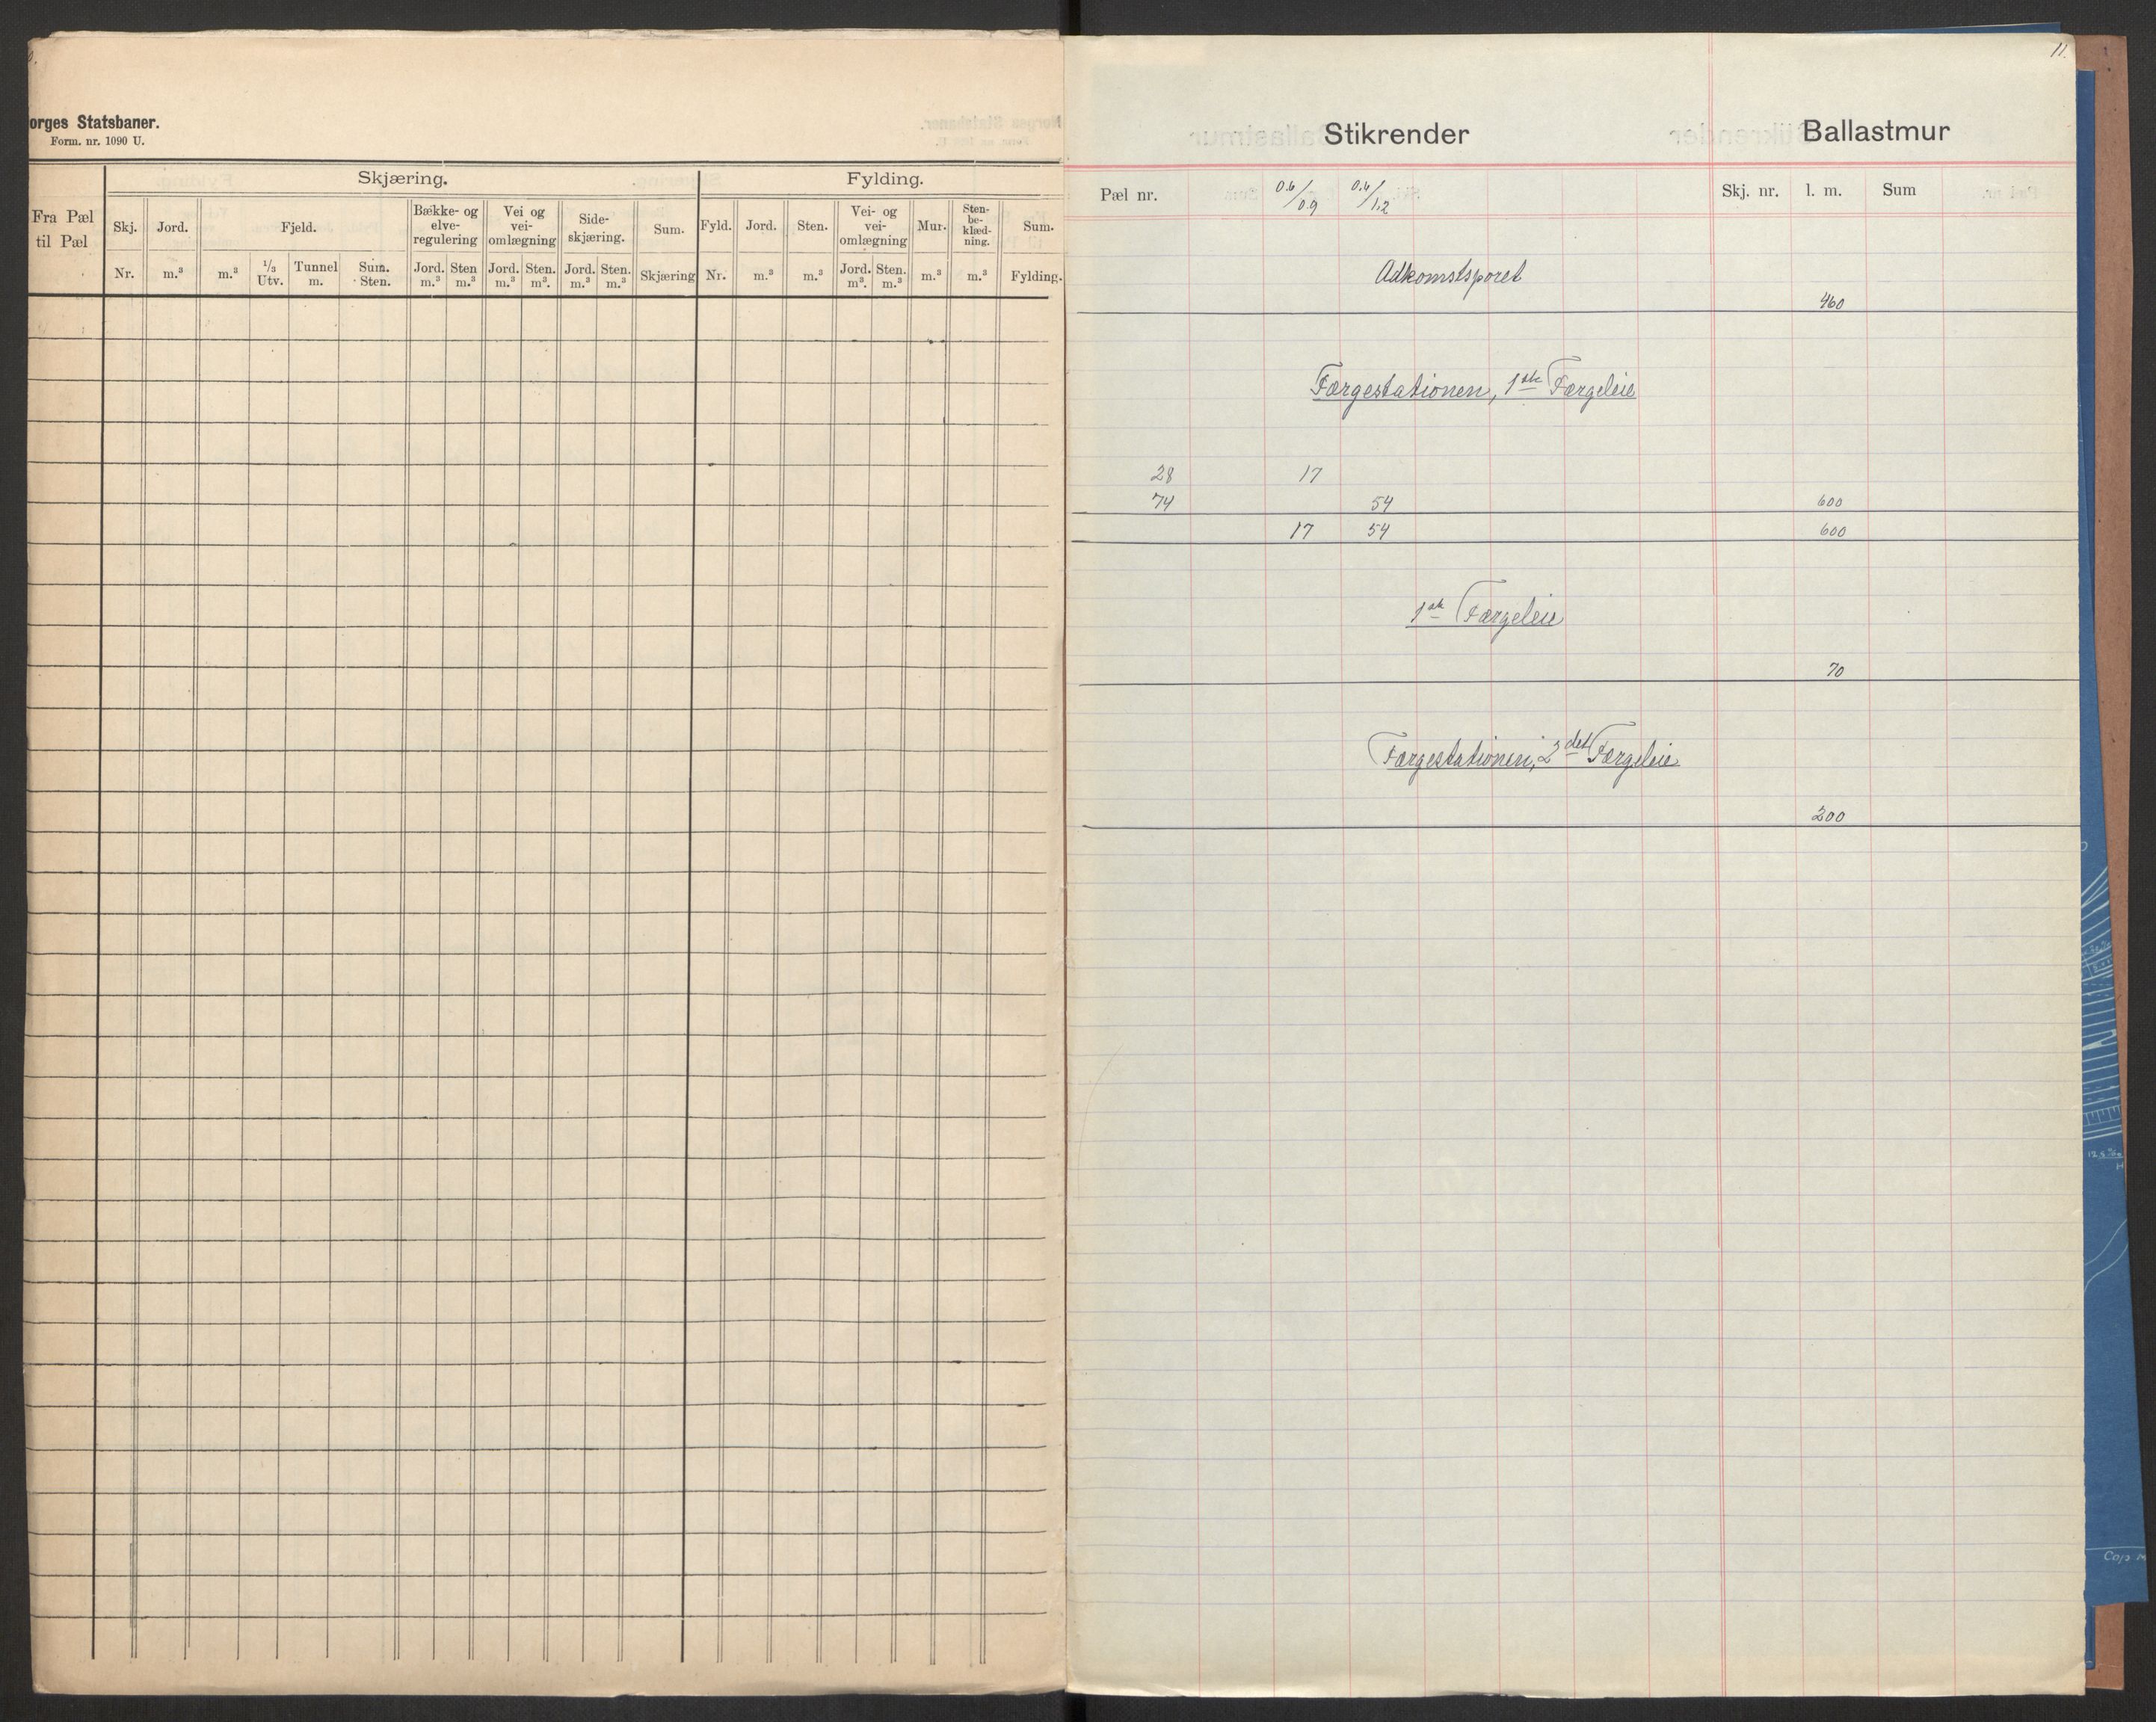 orges Statsbaner.
Form. nr. 1090 U.
Skjæring. Fylding.
Fra Pæl til Pæl
Skj. Nr.
Jord. m.³
Fjeld.
m.³ 1/3 Utv. Tunnel m. Sum. Sten.
Bække- og elve- regulering
Jord. m.³ Sten m.³
Vei og vei- omlægning
Jord. m.³ Sten. m³.
Side- skjæring.
Jord. m.³ Sten. m.³
Sum. Skjæring
Fyld. Nr.
Jord. m.³
Sten. m.³
Vei- og vei- omlægning
Jord. m³. Sten. m.³
Mur. m.³
Sten- be- klæd- ning. m.³
Sum. Fylding.
11.
Stikrender Ballastmur
Pæl nr. 0.6/0.9 0.6/1.2 Skj. nr. l. m. Sum
Adkomstsporet
460
Færgestationen, 1ste Færgeleie
28 17
74 54 600
17 54 600
1ste Færgeleie
70
Færgestationen, 2det Færgeleie
200
12.5
H